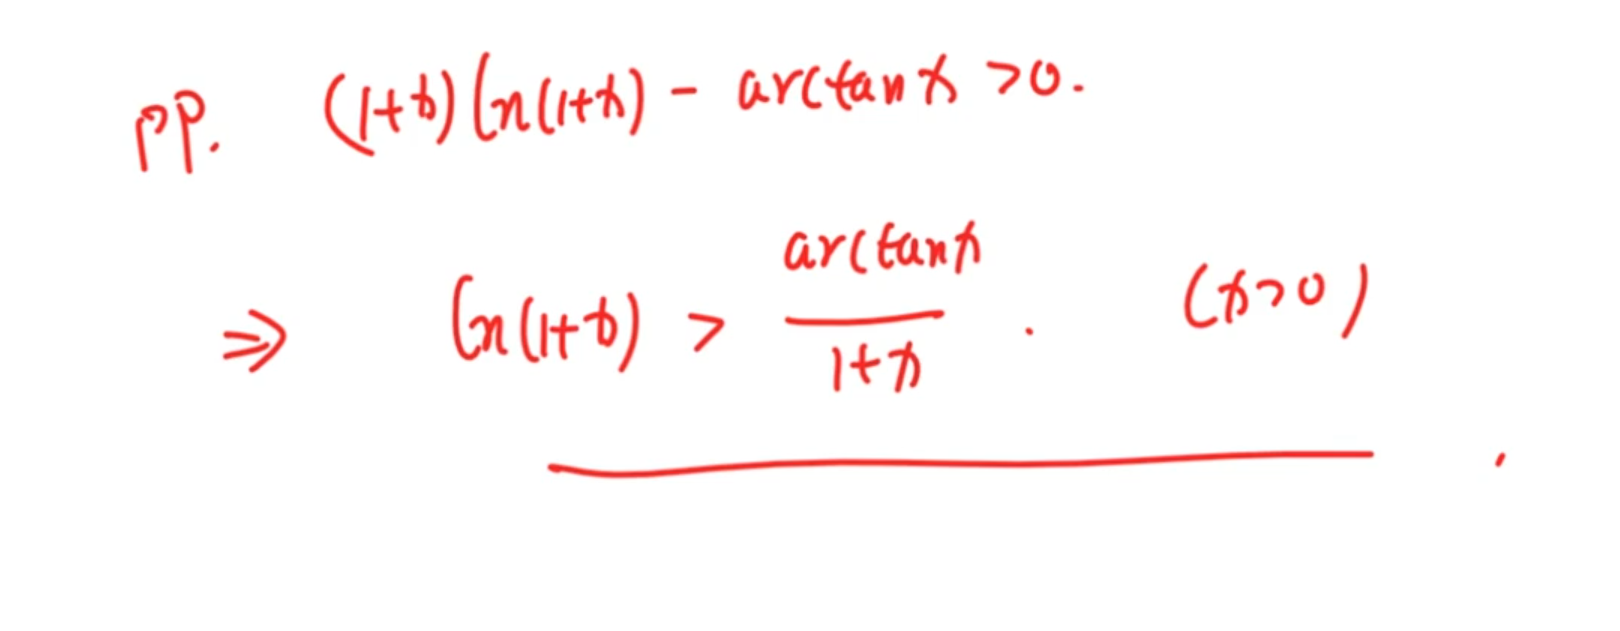 PP. (1+x)ln(1+x) - arctanx >0.
⇒ ln(1+x) > arctanx / 1+x . (x>0)